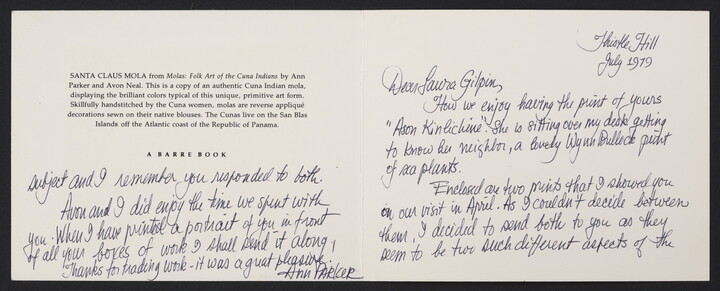 SANTA CLAUS MOLA from Molas: Folk Art of the Cuna Indians by Ann
Parker and Avon Neal. This is a copy of an authentic Cuna Indian mola,
displaying the brilliant colors typical of this unique, primitive art form.
Skillfully handstitched by the Cuna women, molas are reverse appliqué
decorations sewn on their native blouses. The Cunas live on the San Blas
Islands off the Atlantic coast of the Republic of Panama.
A BARRE BOOK
subject and I remember you responded to both.
Avon and I did enjoy the time we spent with
you. When I have printed a portrait of you in front
of all your boxes of work I shall send it along,
Thanks for trading work - it was a great pleasure,
Ann PARKER
Thistle Hill
July 1979
Dear Laura Gilpin,
How we enjoy having the print of yours
She is sitting over my desk getting
to know her neighbor, a lovely Wynn Bullock print
of sea plants.
Enclosed are two prints that I showed you
on our visit in April. As I couldn't decide between
them, I decided to send both to you as they
seem to be two such different aspects of the